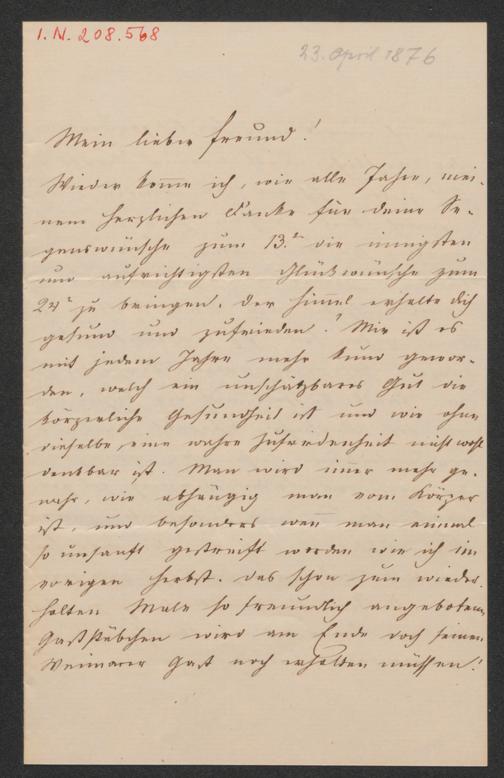 I. N. 208.568
23. April 1876
Mein lieber Freund!
Wieder kome ich, wie alle Jahre, mei-
nem herzlichen Danke für deine Se-
genswünsche zum 13.t die innigsten
und aufrichtigsten Glückwünsche zum
24t zu bringen. Der Himel erhalte dich
gesund und zufrieden! Mir ist es
mit jedem Jahre mehr kund gewor-
den, welch ein unschätzbares Gut die
körperliche Gesundheit ist und wie ohne
dieselbe eine wahre Zufriedenheit nicht wohl
denkbar ist. Man wird imer mehr ge-
wahr, wie abhängig man vom Körper
ist, und besonders wen man einmal
so unsanft gestreift worden wie ich im
vorigen Herbst. Das schon zum wieder-
holten Male so freundlich angebotene
Gaststübchen wird am Ende doch seinen
Weimarer Gast noch erhalten müssen!